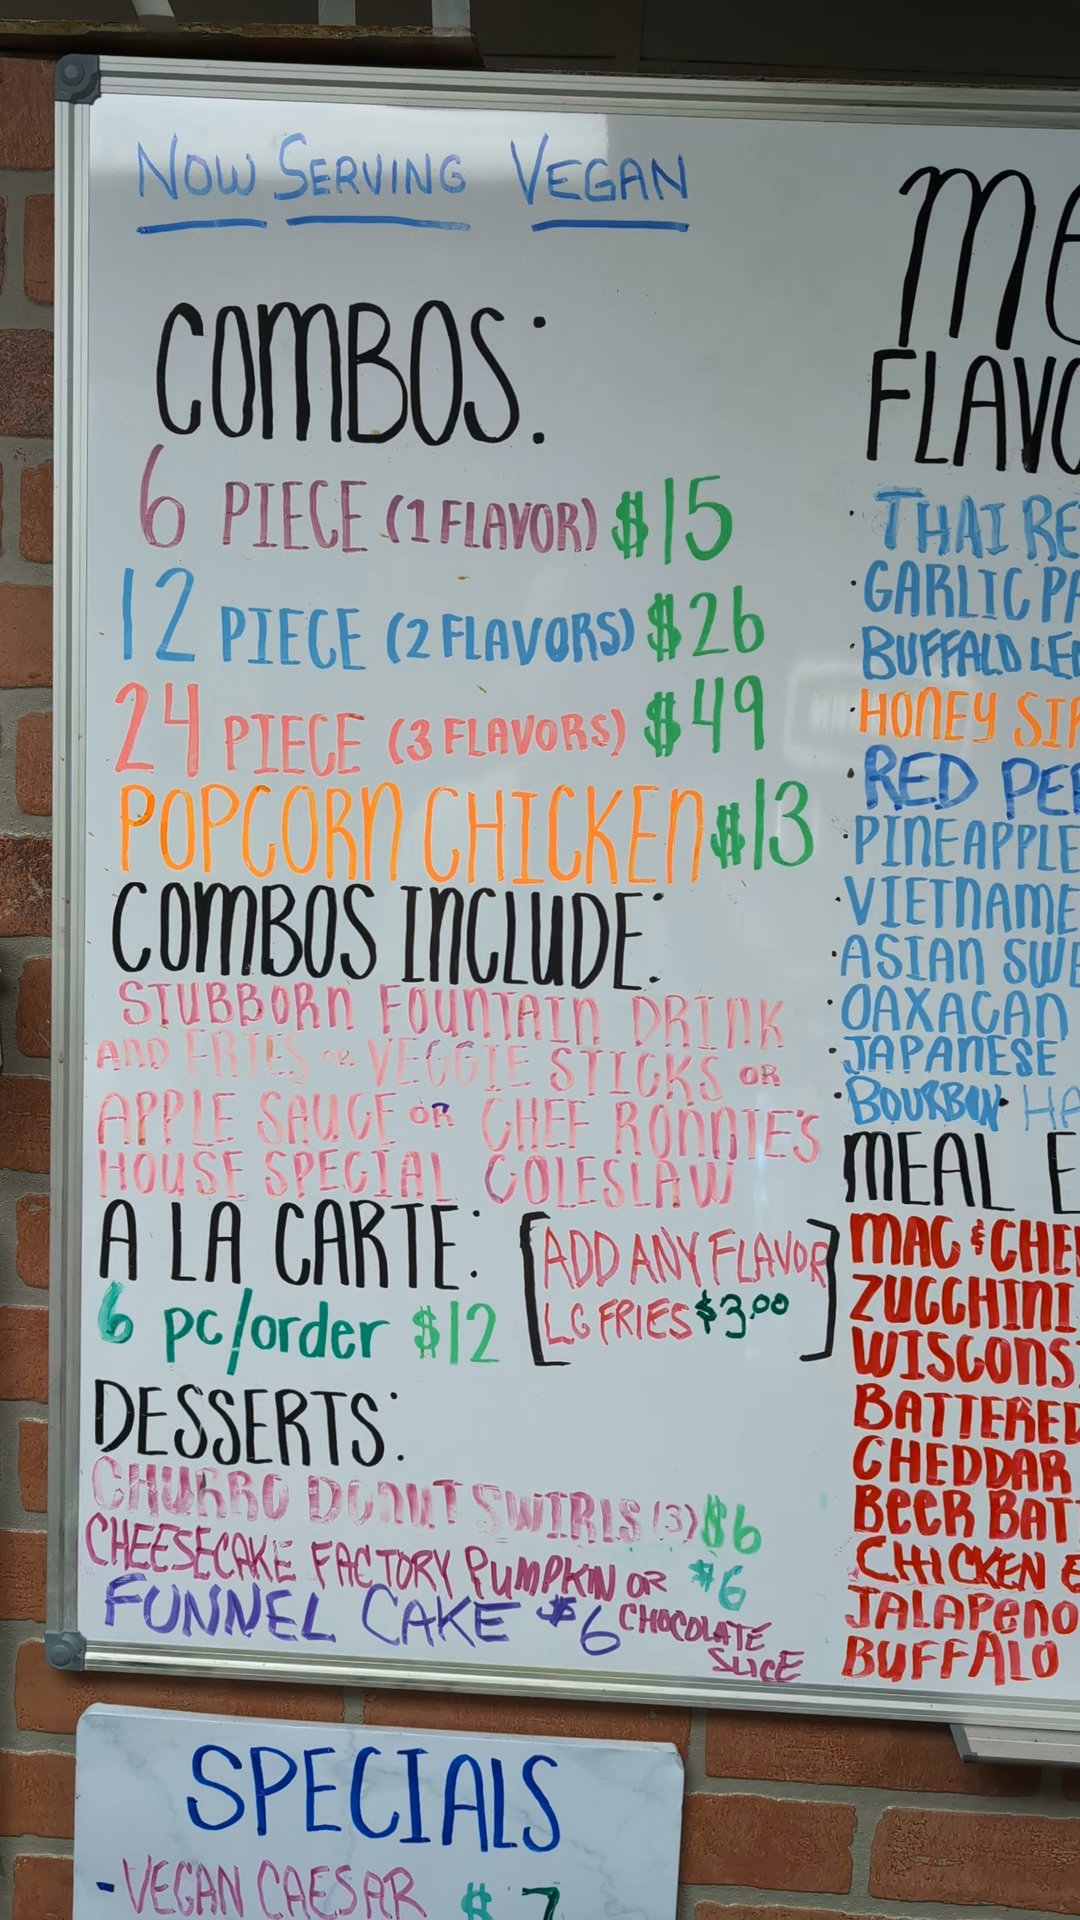 NOW SERVING VEGAN
COMBOS:
6 PIECE (1 FLAVOR) $15
12 PIECE (2 FLAVORS) $26
24 PIECE (3 FLAVORS) $49
POPCORN CHICKEN $13
COMBOS INCLUDE:
STUBBORN FOUNTAIN DRINK
AND FRIES OR VEGGIE STICKS OR
APPLE SAUCE OR CHEF RONNIE'S
HOUSE SPECIAL COLESLAW
A LA CARTE:
6 pc/order $12
[ADD ANY FLAVOR
LG FRIES $3.00]
DESSERTS:
CHURRO DONUT SWIRLS (3) $6
CHEESECAKE FACTORY PUMPKIN OR $6
CHOCOLATE
SLICE
FUNNEL CAKE $6
ME
FLAVO
· THAI RE
· GARLIC PA
· BUFFALO LE
· HONEY SI
· RED PE
· PINEAPPLE
· VIETNAME
· ASIAN SWE
· OAXACAN
· JAPANESE
· BOURBON HA
MEAL E
MAC & CHE
ZUCCHINI
WISCONS
BATTERED
CHEDDAR
BEER BAT
CHICKEN E
JALAPENO
BUFFALO
SPECIALS
- VEGAN CAESAR $7